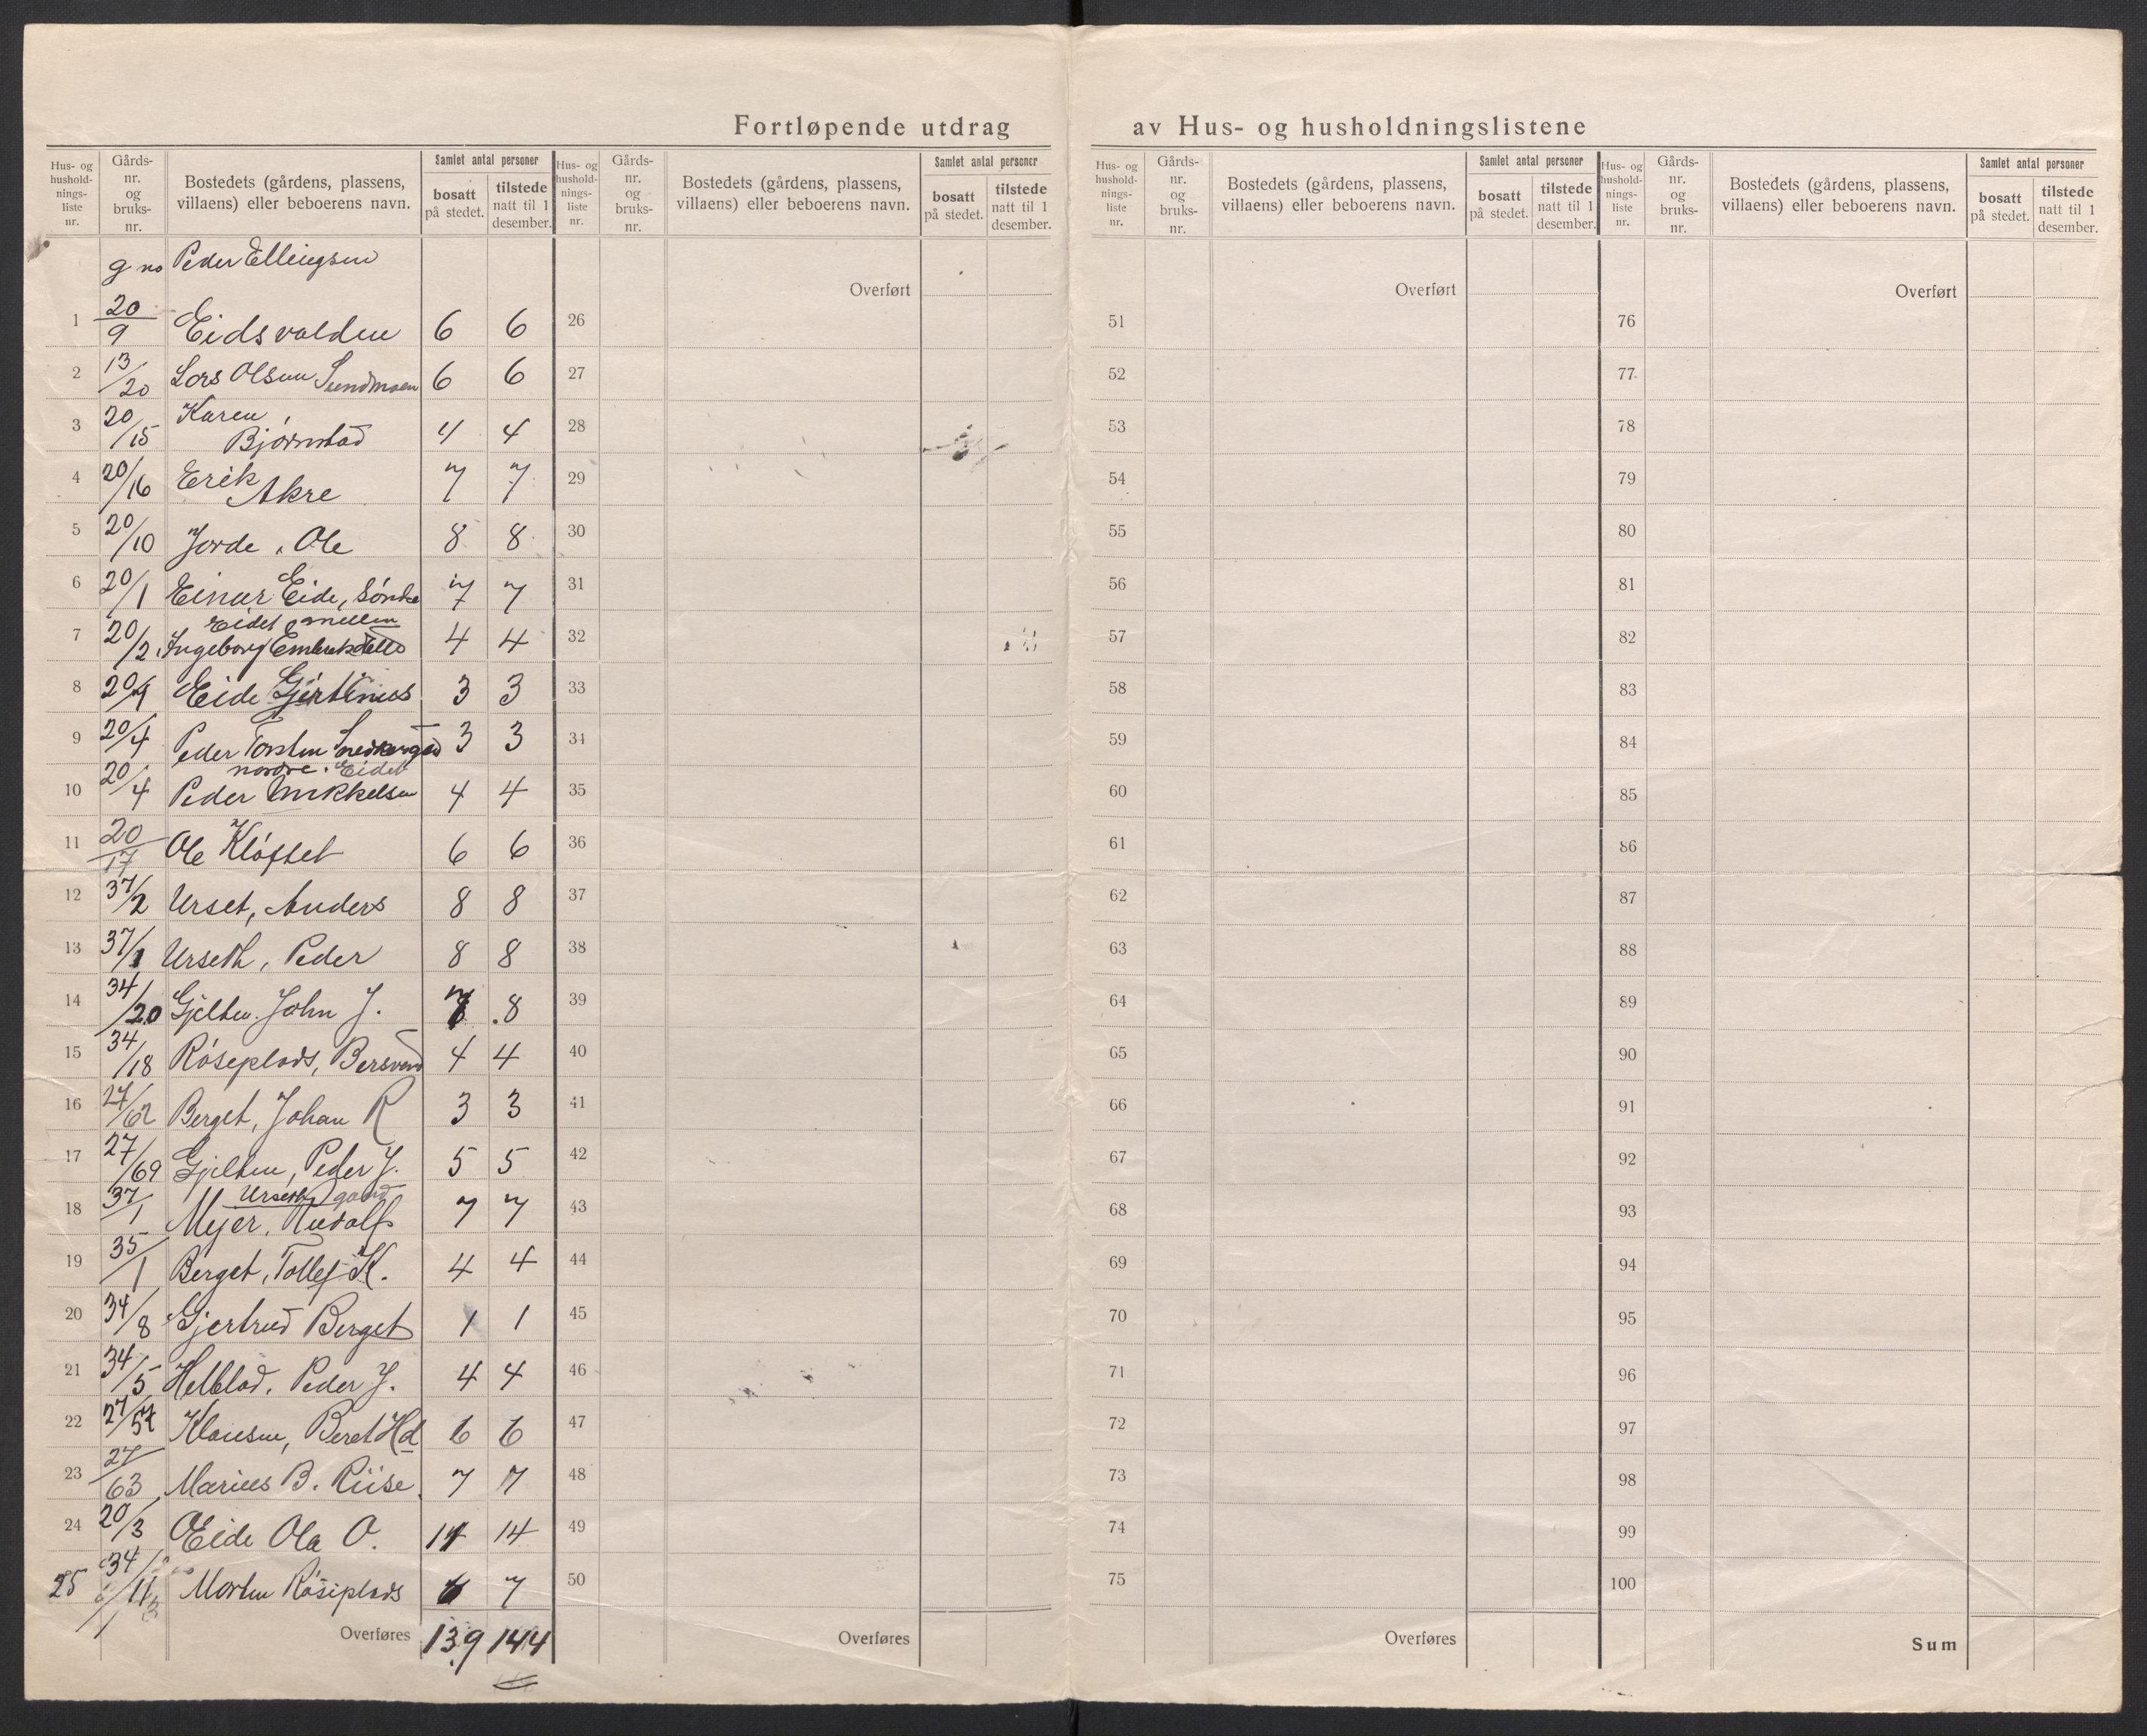 Fortløpende utdrag av Hus- og husholdningslistene
Hus- og hushold-nings-liste nr. Gårds-nr. og bruks-nr. Bostedets (gårdens, plassens, villaens) eller beboerens navn. Samlet antal personer bosatt på stedet. tilstede natt til 1 desember.
Hus- og hushold-nings-liste nr. Gårds-nr. og bruks-nr. Bostedets (gårdens, plassens, villaens) eller beboerens navn. Samlet antal personer bosatt på stedet. tilstede natt til 1 desember.
Hus- og hushold-nings-liste nr. Gårds-nr. og bruks-nr. Bostedets (gårdens, plassens, villaens) eller beboerens navn. Samlet antal personer bosatt på stedet. tilstede natt til 1 desember.
Hus- og hushold-nings-liste nr. Gårds-nr. og bruks-nr. Bostedets (gårdens, plassens, villaens) eller beboerens navn. Samlet antal personer bosatt på stedet. tilstede natt til 1 desember.
g no Peder Ellingsen
Overført Overført Overført
1 20/9 Eidsvolden 6 6 26 51 76
2 13/20 Lars Olsen Sundmoen 6 6 27 52 77
3 20/15 Karen Bjørnstad 4 4 28 53 78
4 20/16 Erik Akre 7 7 29 54 79
5 20/10 Jorde, Ole 8 8 30 55 80
6 20/1 Einar Eide, Søndre 7 7 31 56 81
Eidet mellem
7 20/2 Ingeborg 4 4 32 57 82
8 20/9 Eide Gjertinius 3 3 33 58 83
9 20/4 Peder Torsten 3 3 34 59 84
nordre Eidet
10 20/4 Peder Mikkelsen 4 4 35 60 85
11 20/17 Ole Kløftet 6 6 36 61 86
12 37/2 Urset, Anders 8 8 37 62 87
13 37/1 Urseth, Peder 8 8 38 63 88
14 34/20 Gjelten. John J. 7 8 39 64 89
15 34/18 Røseplads, Bersvend 4 4 40 65 90
16 27/62 Berget, Johan R 3 3 41 66 91
17 27/69 Gjelten, Peder J. 5 5 42 67 92
Urseth gaard
18 37/1 Mejer, Rudolf 7 7 43 68 93
19 35/1 Berget, Tollef K. 4 4 44 69 94
20 34/8 Gjertrud Berget 1 1 45 70 95
21 34/5 Helblad, Peder J. 4 4 46 71 96
22 27/ Klausen, Beret Hd 6 6 47 72 97
23 27/63 Marius B. Riise 7 7 48 73 98
24 20/3 Eide Ola O. 11 14 49 74 99
25 34/11 Morten Røsiplads 6 7 50 75 100
Overføres 139 144 Overføres Overføres Sum